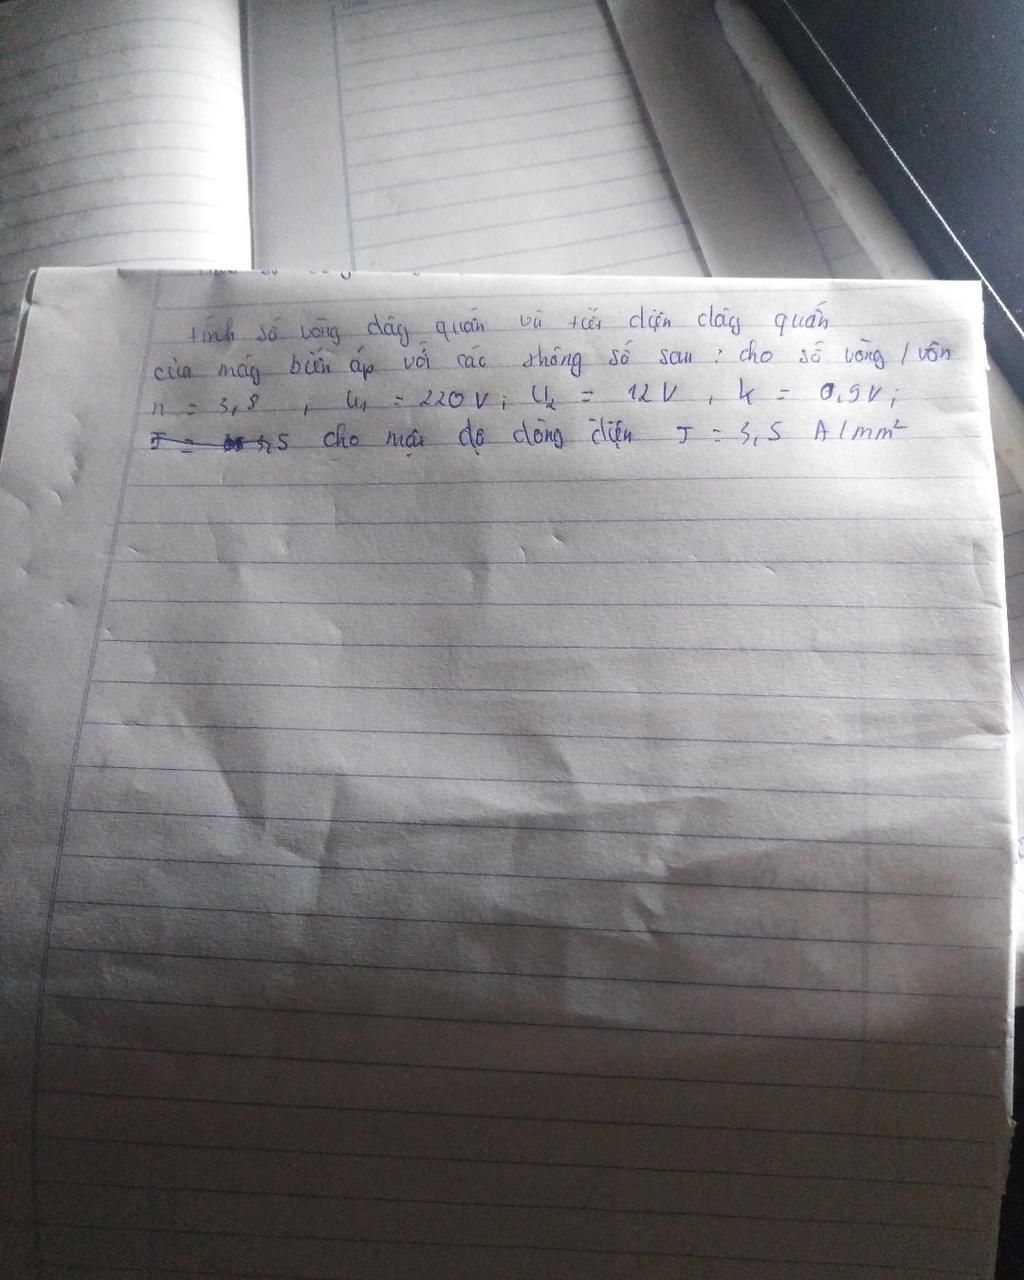 tính số vòng dây quấn và tiết diện dây quấn
của máy biến áp với các thông số sau : cho số vòng / vôn
n = 3,8 ; U1 = 220 V ; U2 = 12 V , k = 0,9 V ;
J = 3,5 cho mật độ dòng điện J = 3,5 A/mm²